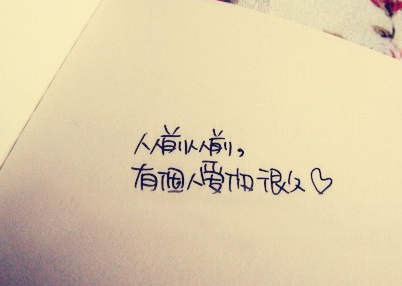 从前从前,
有個人愛你很久♡